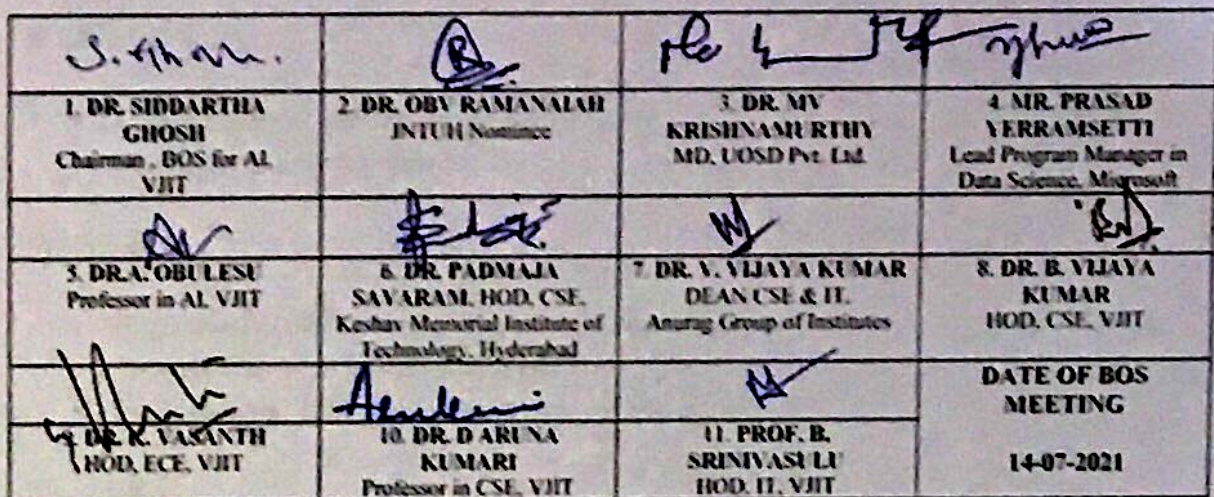 1. DR. SIDDARTHA
GHOSH
Chairman , BOS for AI,
VJIT
2. DR. OBV RAMANAIAH
JNTUH Nominee
3. DR. MV
KRISHNAMURTHY
MD, UOSD Pvt. Ltd.
4. MR. PRASAD
YERRAMSETTI
Lead Program Manager in
Data Science, Microsoft
5. DR.A. OBULESU
Professor in AI, VJIT
6. DR. PADMAJA
SAVARAM, HOD, CSE,
Keshav Memorial Institute of
Technology, Hyderabad
7. DR. V. VIJAYA KUMAR
DEAN CSE & IT,
Anurag Group of Institutes
8. DR. B. VIJAYA
KUMAR
HOD, CSE, VJIT
DR. K. VASANTH
HOD, ECE, VJIT
10. DR. D ARUNA
KUMARI
Professor in CSE, VJIT
11. PROF. B.
SRINIVASULU
HOD, IT, VJIT
DATE OF BOS
MEETING
14-07-2021